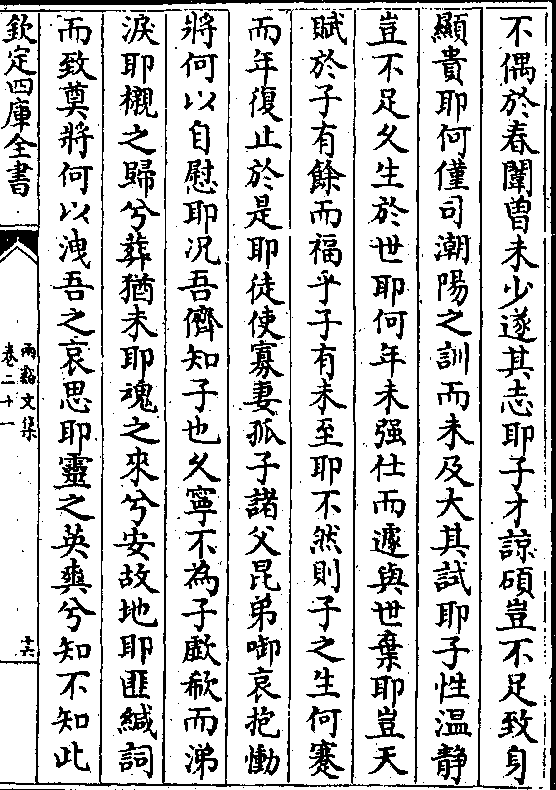 不偶於春闈曽未少遂其志耶子才諒碩豈不足致身
顯貴耶何僅司潮陽之訓而未及大其試耶子性温静
豈不足乆生於世耶何年未强仕而遽與世棄耶豈天
賦於子有餘而福乎子有未至耶不然則子之生何蹇
而年復止於是耶徒使寡妻孤子諸父昆弟啣哀抱慟
將何以自慰耶况吾儕知子也乆寧不為子歔欷而涕
淚耶櫬之歸兮葬猶未耶魂之來兮安故地耶匪緘詞
而致奠將何以洩吾之哀思耶靈之英爽兮知不知此
欽定四庫全書
兩谿文集
卷二十一
十六